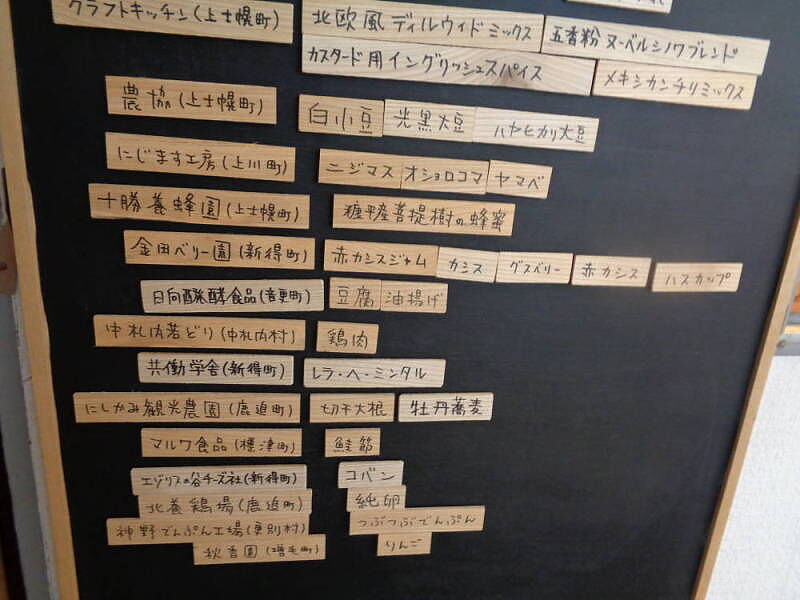 クラフトキッチン(上士幌町) 北欧風ディルウィドミックス 五香粉ヌーベルシノワブレンド
カスタード用イングリッシュスパイス メキシカンチリミックス
農協(上士幌町) 白小豆 光黒大豆 ハヤヒカリ大豆
にじます工房(上川町) ニジマス オショロコマ ヤマベ
十勝養蜂園(上士幌町) 糠平産菩提樹の蜂蜜
金田ベリー園(新得町) 赤カシスジャム カシス グスベリー 赤カシス ハスカップ
日向醗酵食品(音更町) 豆腐 油揚げ
中札内若どり(中札内村) 鶏肉
共働学舎(新得町) レラ・ヘ・ミンタル
にしかみ観光農園(鹿追町) 切干大根 牡丹蕎麦
マルワ食品(標津町) 鮭節
エゾリスの谷チーズ社(新得町) コバン
北養鶏場(鹿追町) 純卵
神野でんぷん工場(更別村) つぶつぶでんぷん
秋香園(増毛町) りんご